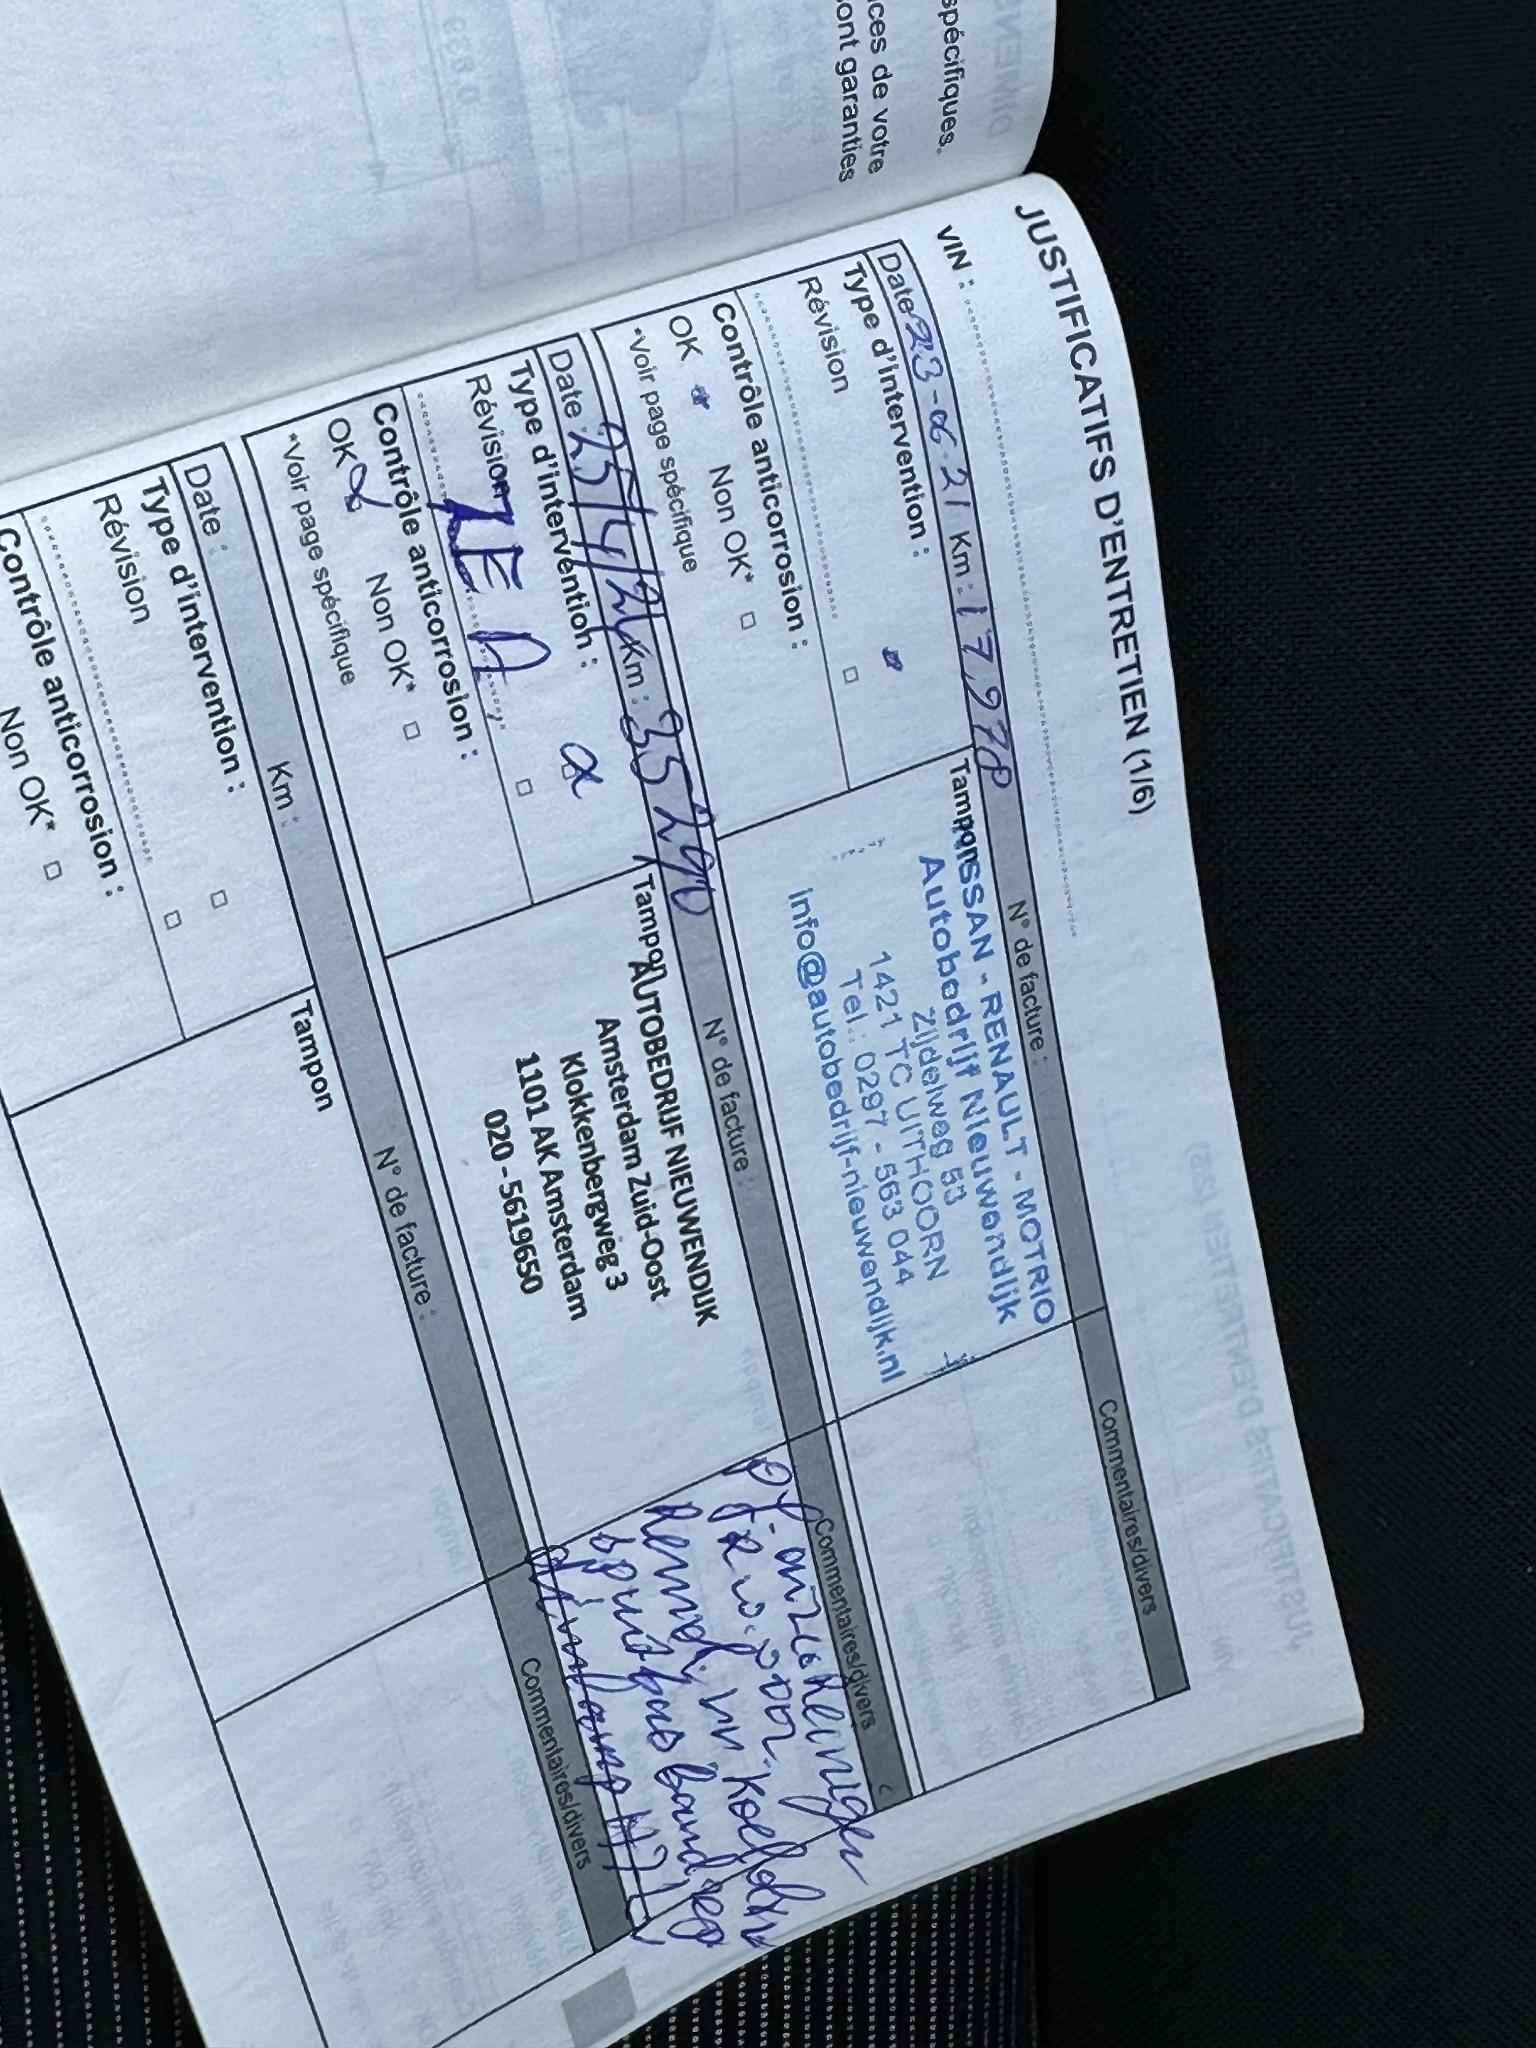 spécifiques.
ces de votre
ont garanties
JUSTIFICATIFS D'ENTRETIEN (1/6)
VIN :
Date 23-06-21 Km : 17978 N° de facture : Commentaires/divers
Type d'intervention :
Révision
Contrôle anticorrosion :
OK Non OK*
*Voir page spécifique
Tampon
NISSAN - RENAULT - MOTRIO
Autobedrijf Nieuwendijk
Zijdelweg 53
1421 TC UITHOORN
Tel.: 0297 - 563 044
info@autobedrijf-nieuwendijk.nl
Date : 25/4/2 Km : 35290 N° de facture : Commentaires/divers
Type d'intervention :
Révision ZE A
Contrôle anticorrosion :
OK Non OK*
*Voir page spécifique
Tampon
AUTOBEDRIJF NIEUWENDIJK
Amsterdam Zuid-Oost
Klokkenbergweg 3
1101 AK Amsterdam
020 - 5619650
Remvl. en Koelvl.
Date : Km : N° de facture : Commentaires/divers
Type d'intervention :
Révision
Contrôle anticorrosion :
Non OK*
Tampon